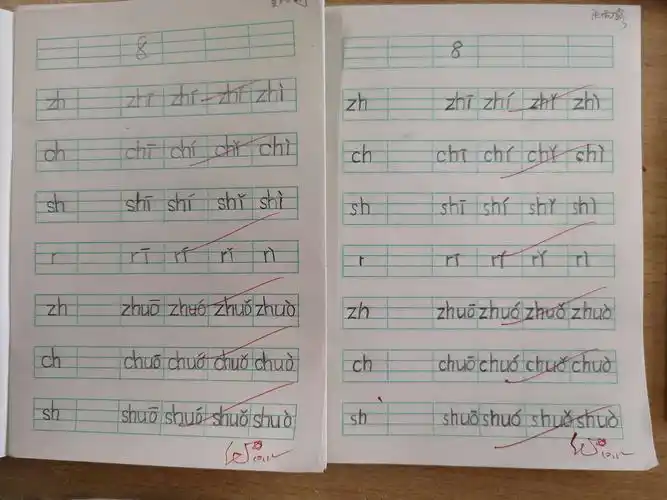 8
zh zhī zhí zhǐ zhì
ch chī chí chǐ chì
sh shī shí shǐ shì
r rī rí rǐ rì
zh zhuō zhuó zhuǒ zhuò
ch chuō chuó chuǒ chuò
sh shuō shuó shuǒ shuò
8
zh zhī zhí zhǐ zhì
ch chī chí chǐ chì
sh shī shí shǐ shì
r rī rí rǐ rì
zh zhuō zhuó zhuǒ zhuò
ch chuō chuó chuǒ chuò
sh shuō shuó shuǒ shuò